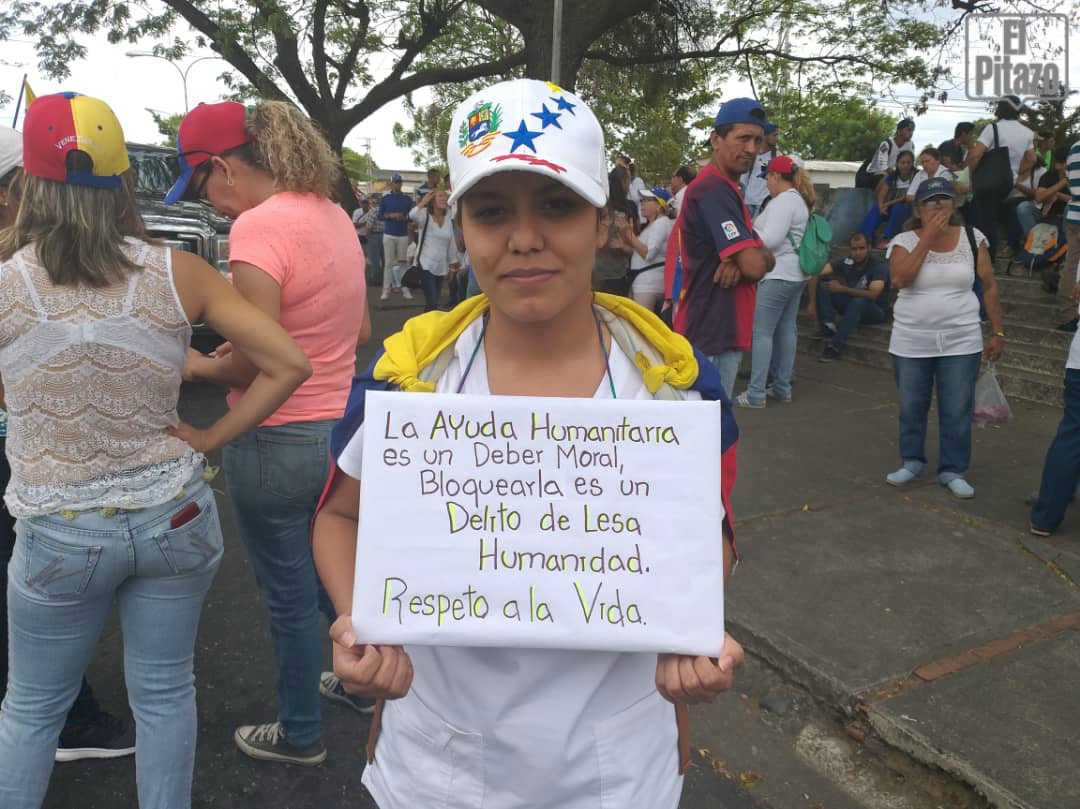 El
Pitazo
VENEZUELA
La AYuda Humanitaria
es un Deber Moral,
Bloquearla es un
Delito de Lesa
Humanidad.
Respeto a la Vida.